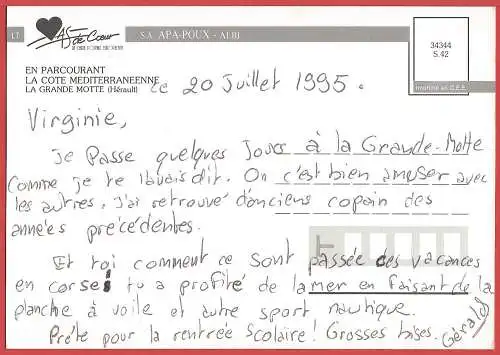 LT
As de Cœur
S.A. APA-POUX - ALBI
34344
S.42
Imprimé en C.E.E.
EN PARCOURANT
LA COTE MEDITERRANEENNE
LA GRANDE MOTTE (Hérault)
Le 20 Juillet 1995.
Virginie,
Je Passe quelques Jours à la Grande-Motte
Comme je te l'avais dit. On c'est bien amuser avec
les autres, J'ai retrouvé d'anciens copain des
années précédentes.
Et toi comment ce sont passée des vacances
en corse tu a profité de la mer en faisant de la
planche à voile et autre sport nautique.
Prête pour la rentrée Scolaire! Grosses bises.
Gérald